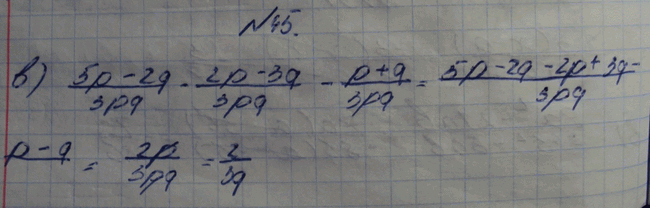 №45.
в) 5p-2q/3pq - 2p-3q/3pq - p+q/3pq = 5p-2q-2p+3q-/3pq
p-q/ = 2p/3pq = 2/3q